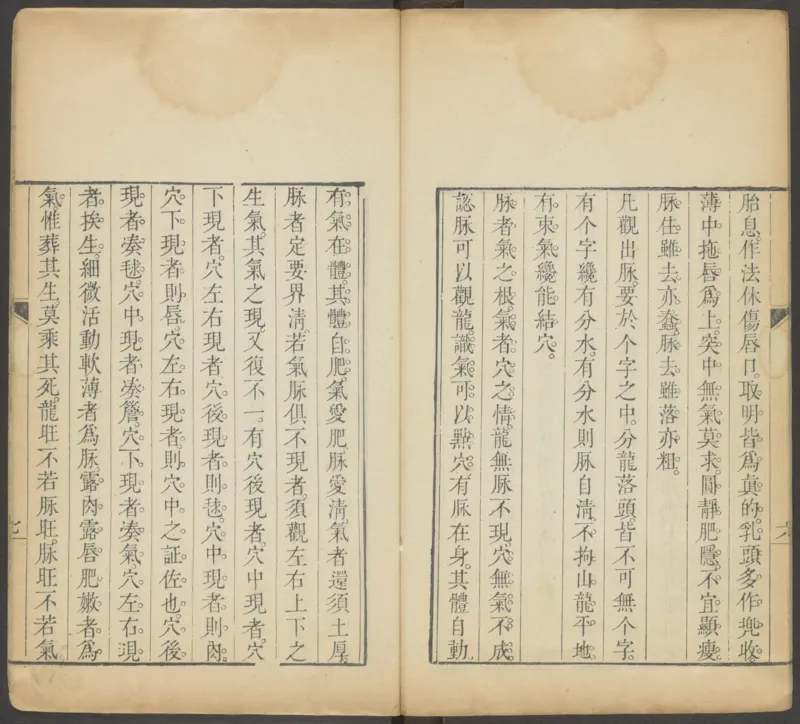 胎息。作法休傷唇口。取明皆為真的。乳頭多作兜收。
薄中拖唇為上。突中無氣莫求。圓靜肥隱。不宜顯瘦。
脉住雖去亦蠢。脉去雖落亦粗。
凡觀出脉。要於个字之中。分龍落頭。皆不可無个字。
有个字纔有分水。有分水則脉自清。不拘山龍平地。
有。束氣纔能結穴。
脉者氣之根。氣者穴之情。龍無脉不現。穴無氣不成。
認脉可以觀龍。識氣可以點穴。有脉在身。其體自動。
六
有氣在體。其體自肥。氣愛肥。脉愛清。氣者還須土厚。
脉者定要界清。若氣脉俱不現者。須觀左右上下之
生氣。其氣之現。又復不一。有穴後現者。穴中現者。穴
下現者。穴左右現者。穴後現者則毬。穴中現者則肉。
穴下現者則唇。穴左右現者則穴中之証佐也。穴後
現者湊毬。穴中現者湊簷。穴下現者湊氣。穴左右現
者。挨生。細微活動軟薄者為脉。露肉露唇肥嫩者為
氣。惟葬其生。莫乘其死。龍旺不若脉旺。脉旺不若氣
七